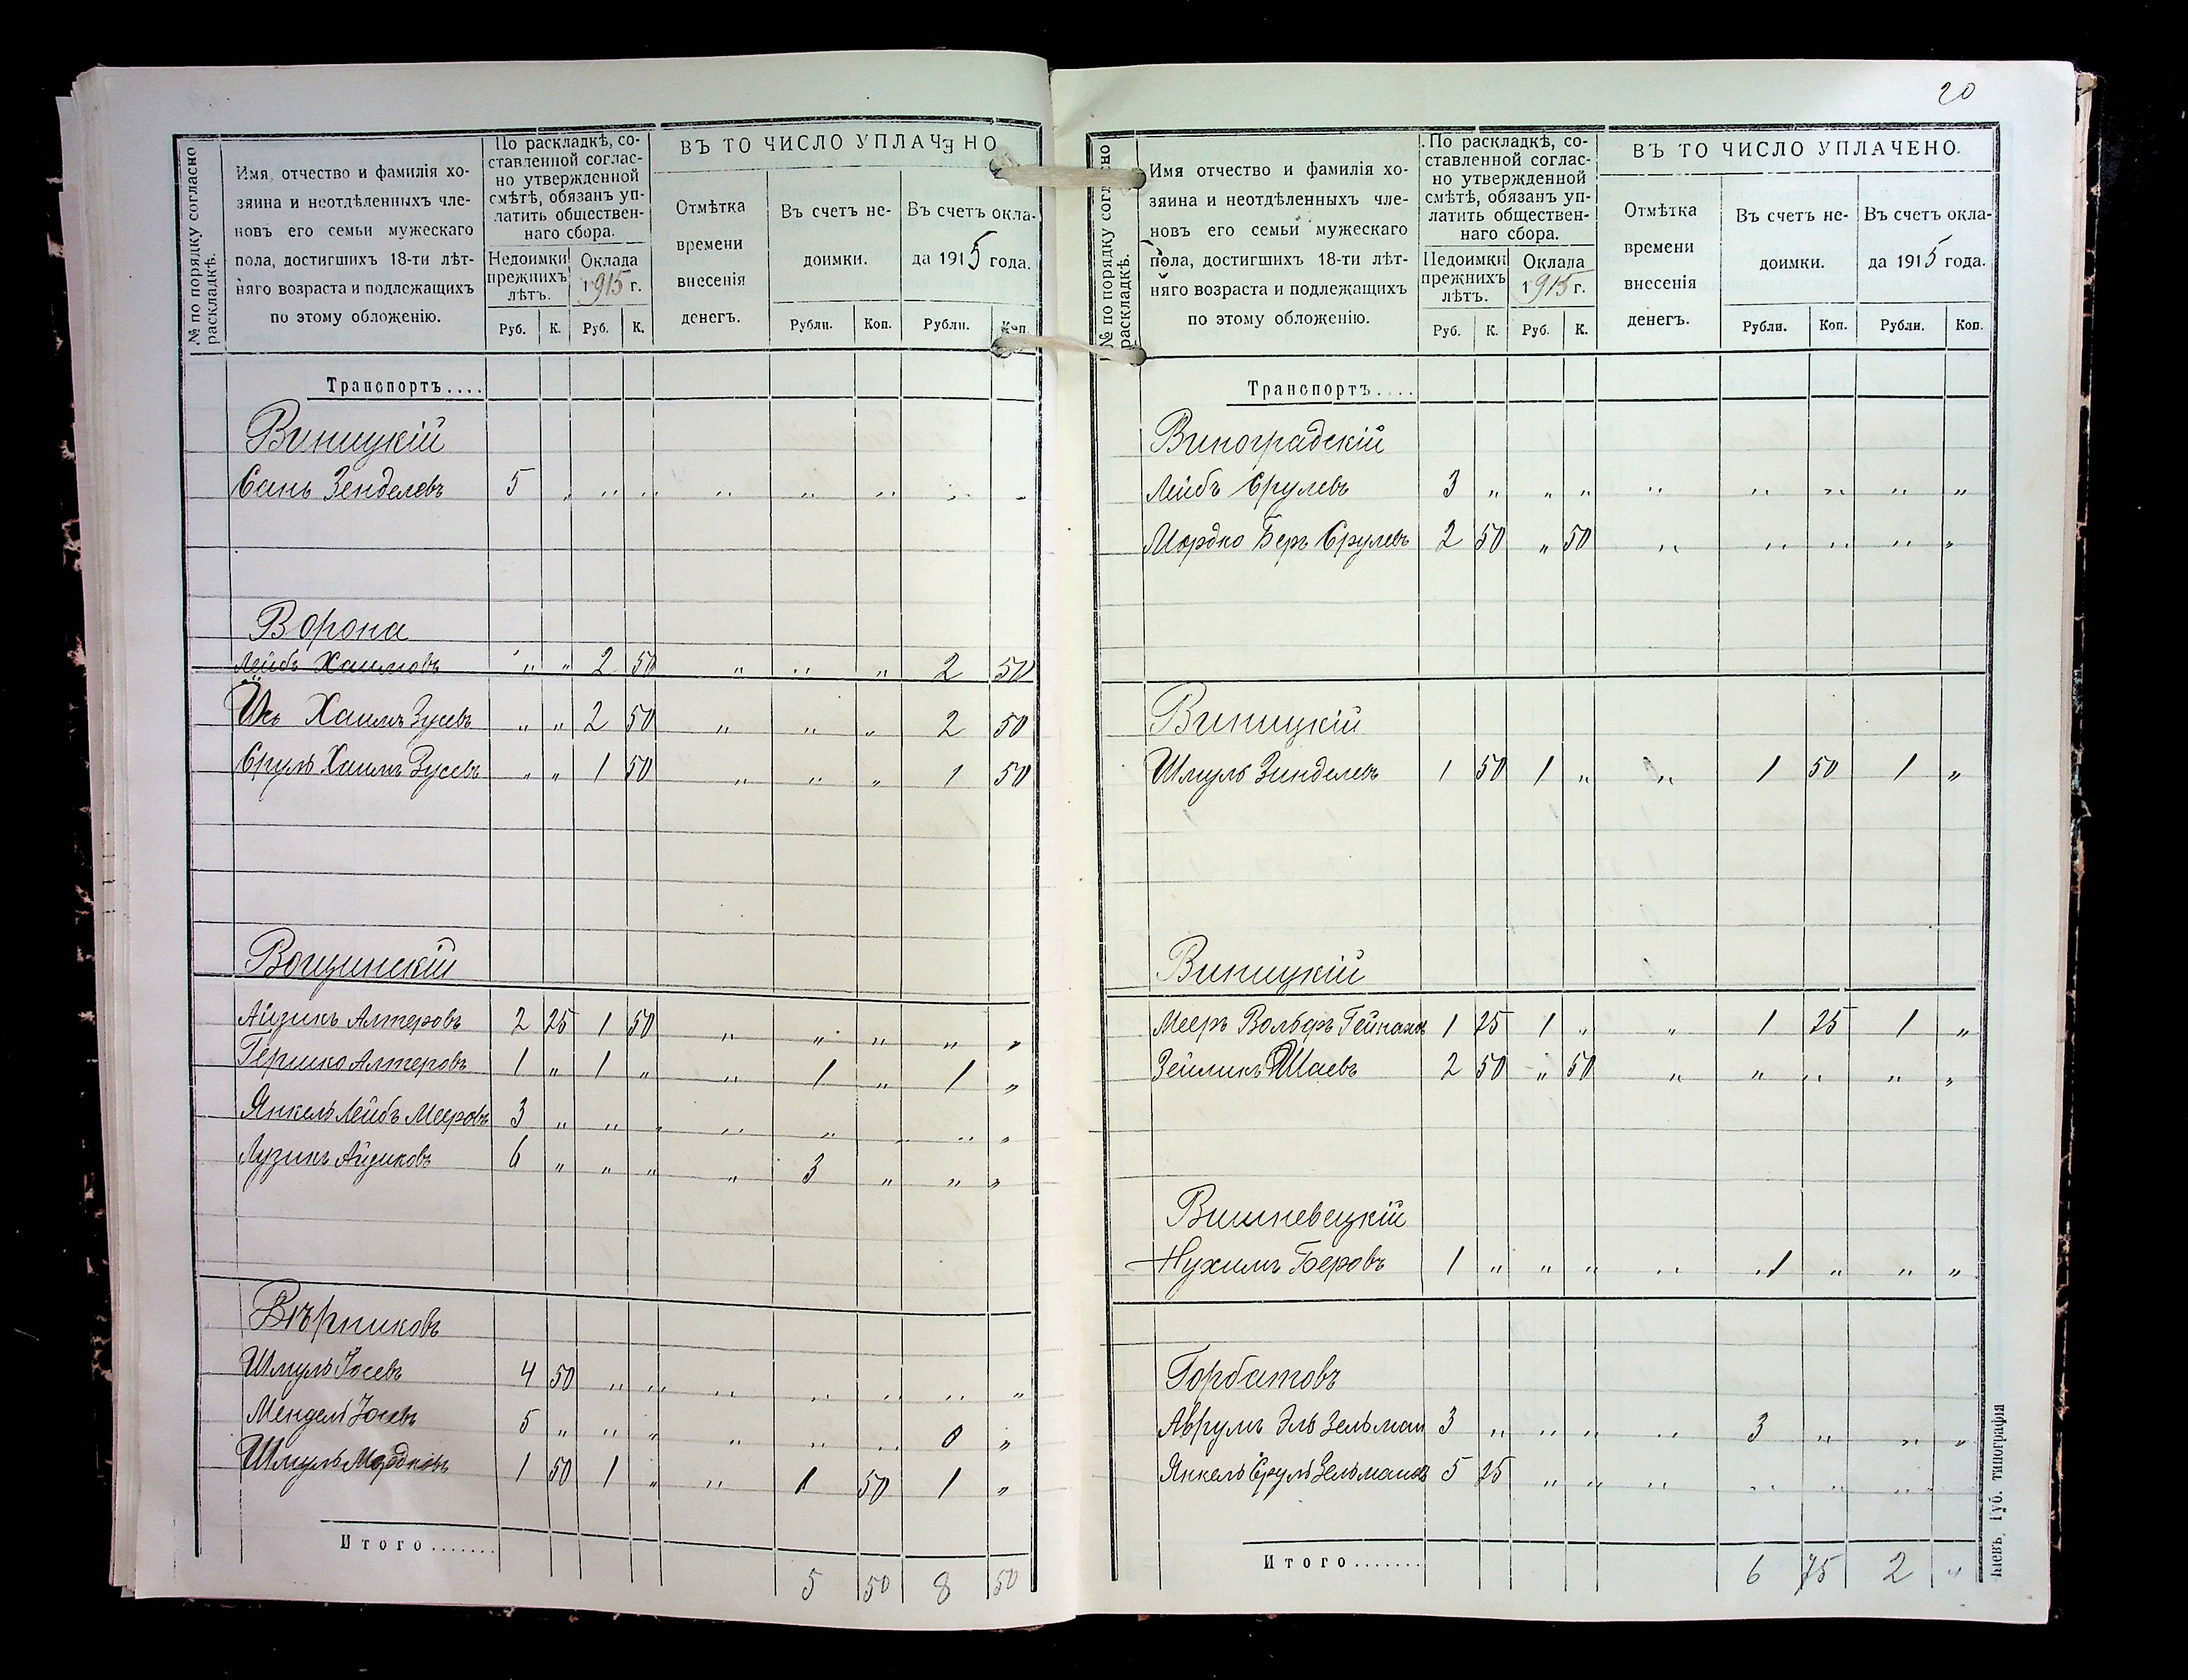 20
№ по порядку согласно раскладкѣ.
Имя, отчество и фамилія хо-
зяина и неотдѣленныхъ чле-
новъ его семьи мужескаго
пола, достигшихъ 18-ти лѣт-
няго возраста и подлежащихъ
по этому обложенію.
По раскладкѣ, со-
ставленной соглас-
но утвержденной
смѣтѣ, обязанъ уп-
латить обществен-
наго сбора.
Недоимки прежнихъ лѣтъ.
Оклада 1915 г.
Руб. К. Руб. К.
ВЪ ТО ЧИСЛО УПЛАЧЕНО
Отмѣтка
времени
внесенія
денегъ.
Въ счетъ не-
доимки.
Въ счетъ окла-
да 1915 года.
Рубли. Коп. Рубли. Коп.
Транспортъ....
Виницкій
Сань Зенделевъ 5 " " " " " " " "
Ворона
Лейбъ Хаимовъ " " 2 50 " " " 2 50
Хаимъ Зусевъ " " 2 50 " " " 2 50
Сруль Хаимъ Зусевъ " " 1 50 " " " 1 50
Вощинскій
Айзикъ Алтеровъ 2 25 1 50 " " " " "
Гершко Алтеровъ 1 " 1 " " 1 " 1 "
Янкель Лейбъ Мееровъ 3 " " " " " " " "
Лузикъ Айзиковъ 6 " " " " 3 " " "
Вѣрниковъ
Шмуль Іосевъ 4 50 " " " " " " "
Мендель Іосевъ 5 " " " " " " 0 "
Шмуль Мордковъ 1 50 1 " " 1 50 1 "
Итого.......
5 50 8 50
№ по порядку согласно раскладкѣ.
Имя отчество и фамилія хо-
зяина и неотдѣленныхъ чле-
новъ его семьи мужескаго
пола, достигшихъ 18-ти лѣт-
няго возраста и подлежащихъ
по этому обложенію.
По раскладкѣ, со-
ставленной соглас-
но утвержденной
смѣтѣ, обязанъ уп-
латить обществен-
наго сбора.
Недоимки прежнихъ лѣтъ.
Оклада 1915 г.
Руб. К. Руб. К.
ВЪ ТО ЧИСЛО УПЛАЧЕНО.
Отмѣтка
времени
внесенія
денегъ.
Въ счетъ не-
доимки.
Въ счетъ окла-
да 1915 года.
Рубли. Коп. Рубли. Коп.
Транспортъ....
Виноградскій
Лейбъ Срулевъ 3 " " " " " " " "
Мордко Беръ Срулевъ 2 50 " 50 " " " " "
Виницкій
Шмуль Зинделевъ 1 50 1 " " 1 50 1 "
Виницкій
Мееръ Вольфъ 1 25 1 " " 1 25 1 "
Зейликъ Шаевъ 2 50 " 50 " " " " "
Вишневецкій
Нухимъ Беровъ 1 " " " " 1 " " "
Горбатовъ
Аврумъ Эль Зельман 3 " " " " 3 " " "
Янкель Сруль Зельмановъ 5 25 " " " " " "
Итого.......
6 75 2 "
Кіевъ, Губ. типографія